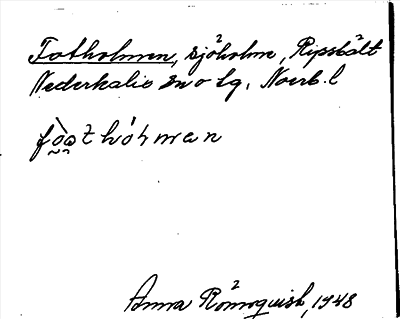 Fotholmen, sjöholme, Ripsbålt
Nederkalix sn o lg, Norrb. l
Anna Rönnquist, 1948